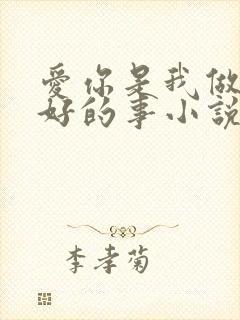 愛你是我做
好的事小説
李孝菊